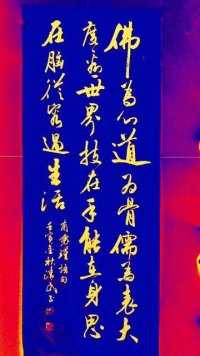 佛為心道为骨儒為表大
度看世界技在手能在身思
在腦從容過生活
南懷瑾語句